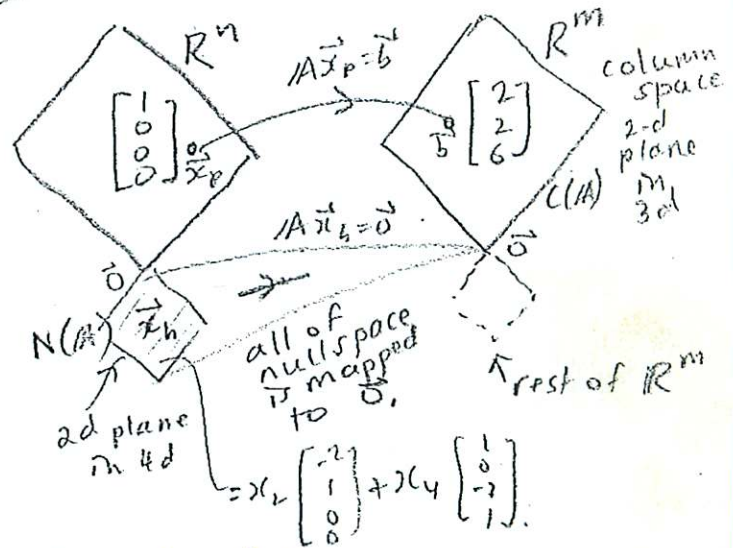 Rⁿ
A x⃗ₚ = b⃗
Rᵐ
column
space
2-d
plane
in
3d
[1 0 0 0]
x⃗ₚ
b⃗
[2 2 6]
C(A)
A x⃗ₕ = 0⃗
0⃗
0⃗
N(A)
x⃗ₕ
all of
nullspace
is mapped
to 0⃗.
rest of Rᵐ
2d plane
in 4d
= x₂ [-2 1 0 0] + x₄ [1 0 -2 1].